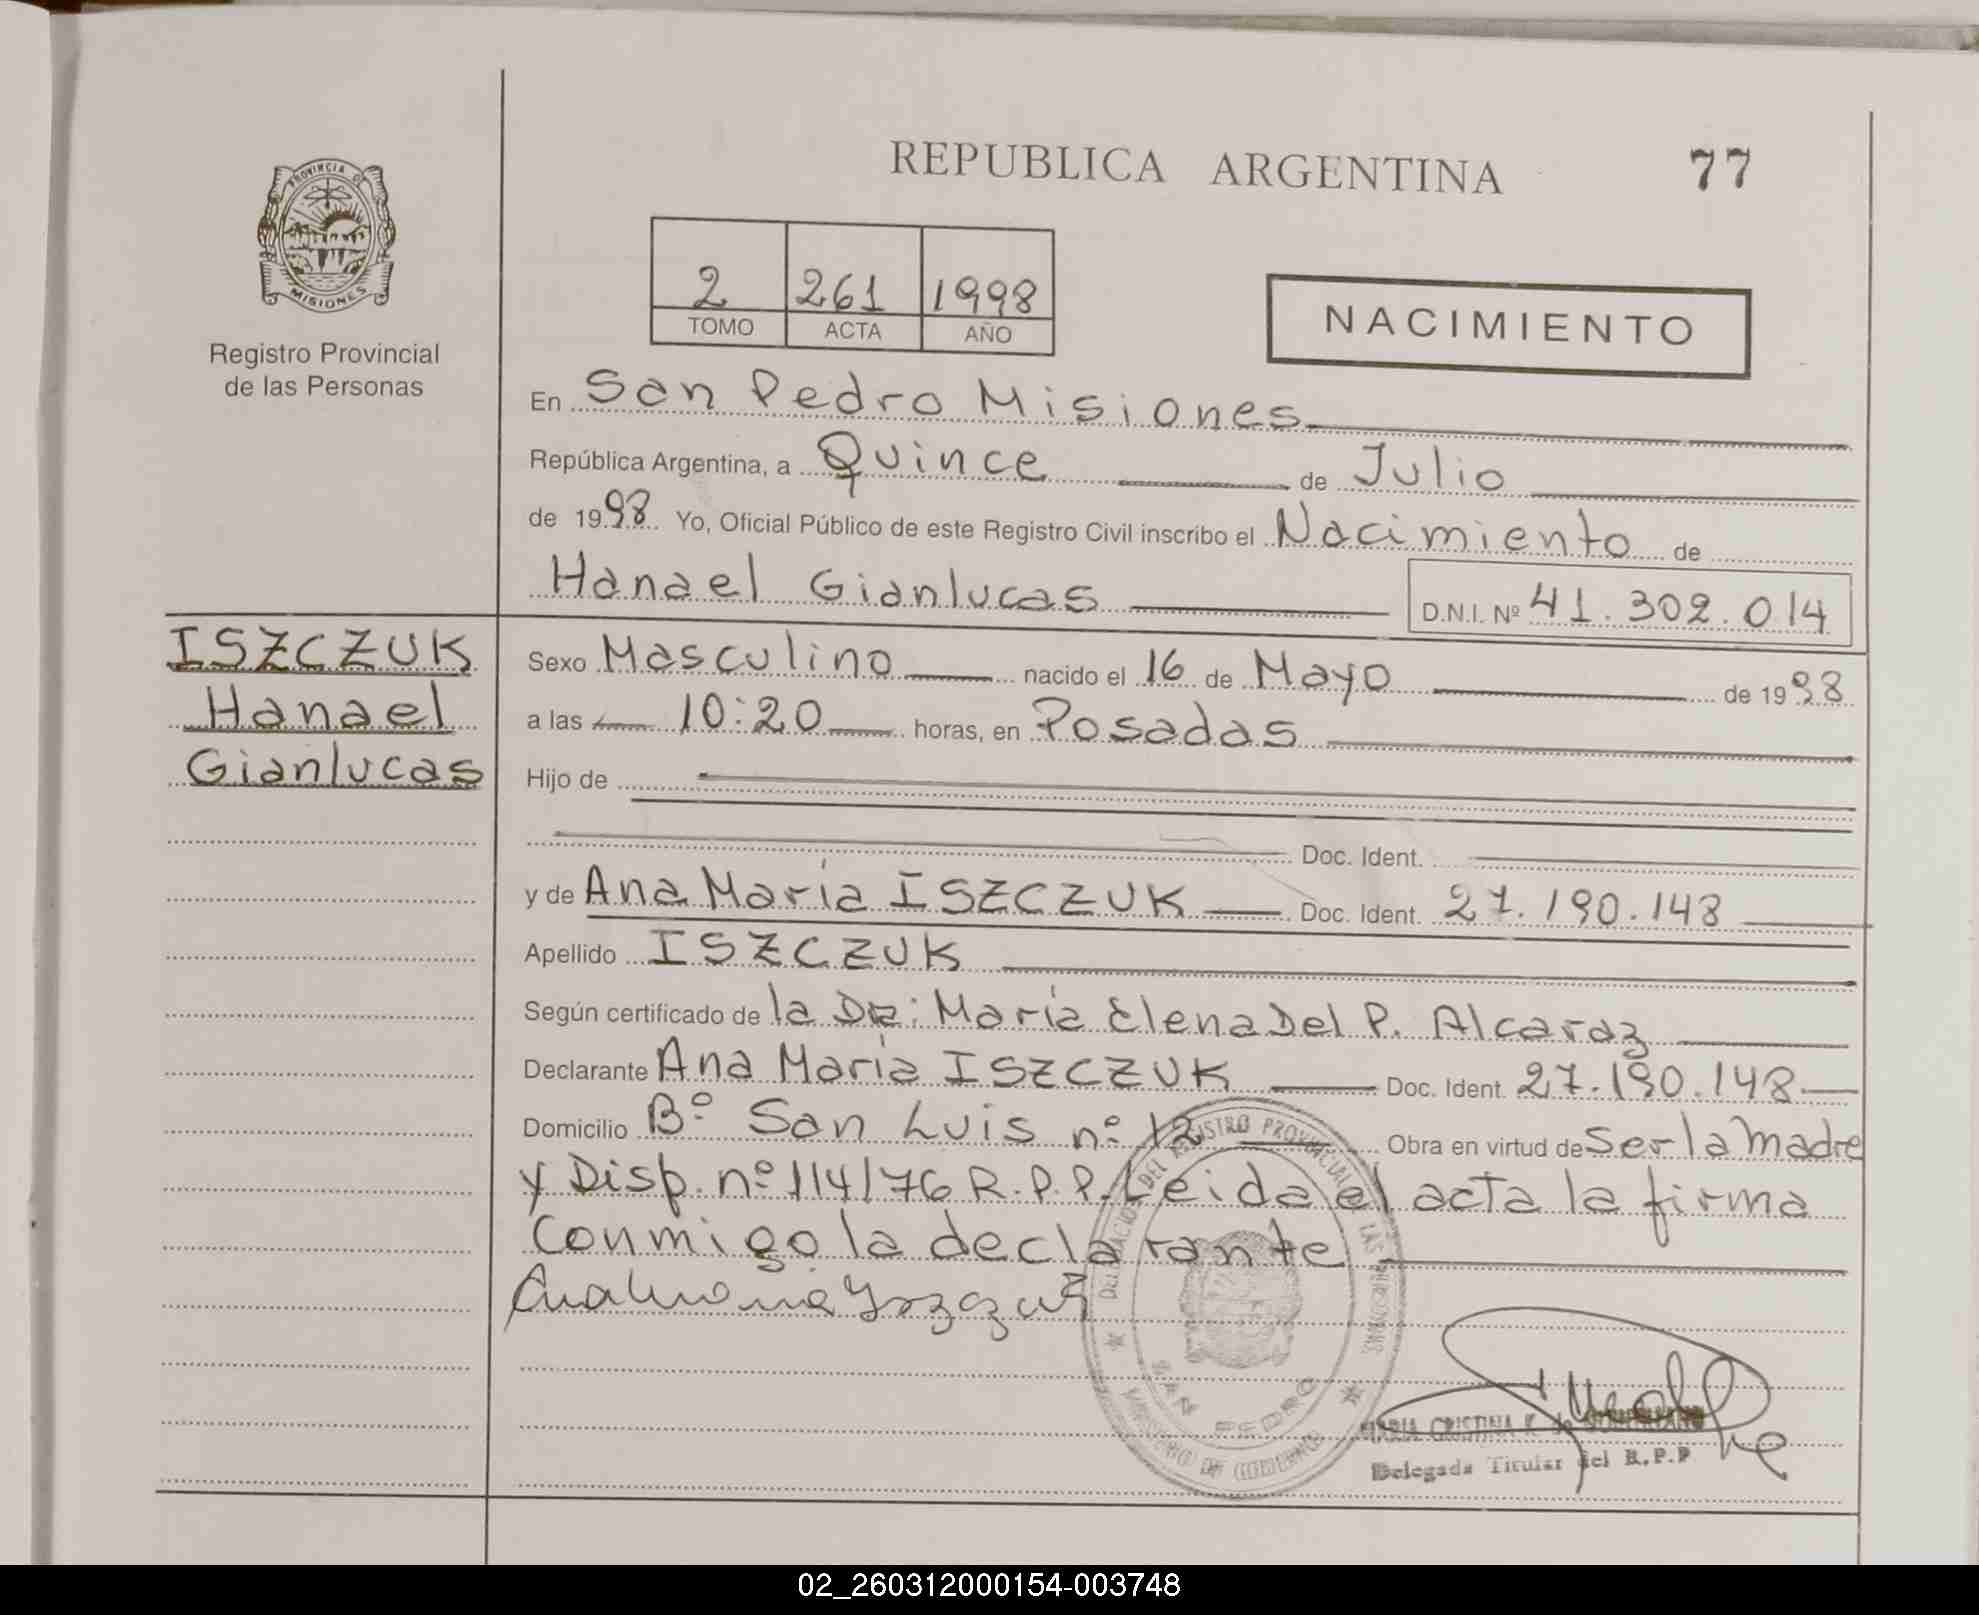 REPUBLICA ARGENTINA
77
PROVINCIA DE
MISIONES
Registro Provincial
de las Personas
2 261 1998
TOMO ACTA AÑO
NACIMIENTO
En San Pedro Misiones
República Argentina, a Quince de Julio
de 1998 Yo, Oficial Público de este Registro Civil inscribo el Nacimiento de
Hanael Gianlucas D.N.I. Nº 41.302.014
ISZCZUK
Hanael
Gianlucas
Sexo Masculino nacido el 16 de Mayo de 1998
a las 10:20 horas, en Posadas
Hijo de
Doc. Ident.
y de Ana María ISZCZUK Doc. Ident. 27.190.148
Apellido ISZCZUK
Según certificado de la Dra: María Elena Del P. Alcaraz
Declarante Ana María ISZCZUK Doc. Ident. 27.190.148
Domicilio Bº San Luis nº 12 Obra en virtud de Ser la madre
y Disp. nº 114/76 R.P.P. Leida el acta la firma
conmigo la declarante
DELEGACION DEL REGISTRO PROVINCIAL DE LAS PERSONAS
SAN PEDRO
MINISTERIO DE GOBIERNO
MARIA CRISTINA K. de
Delegada Titular del R.P.P
02_260312000154-003748